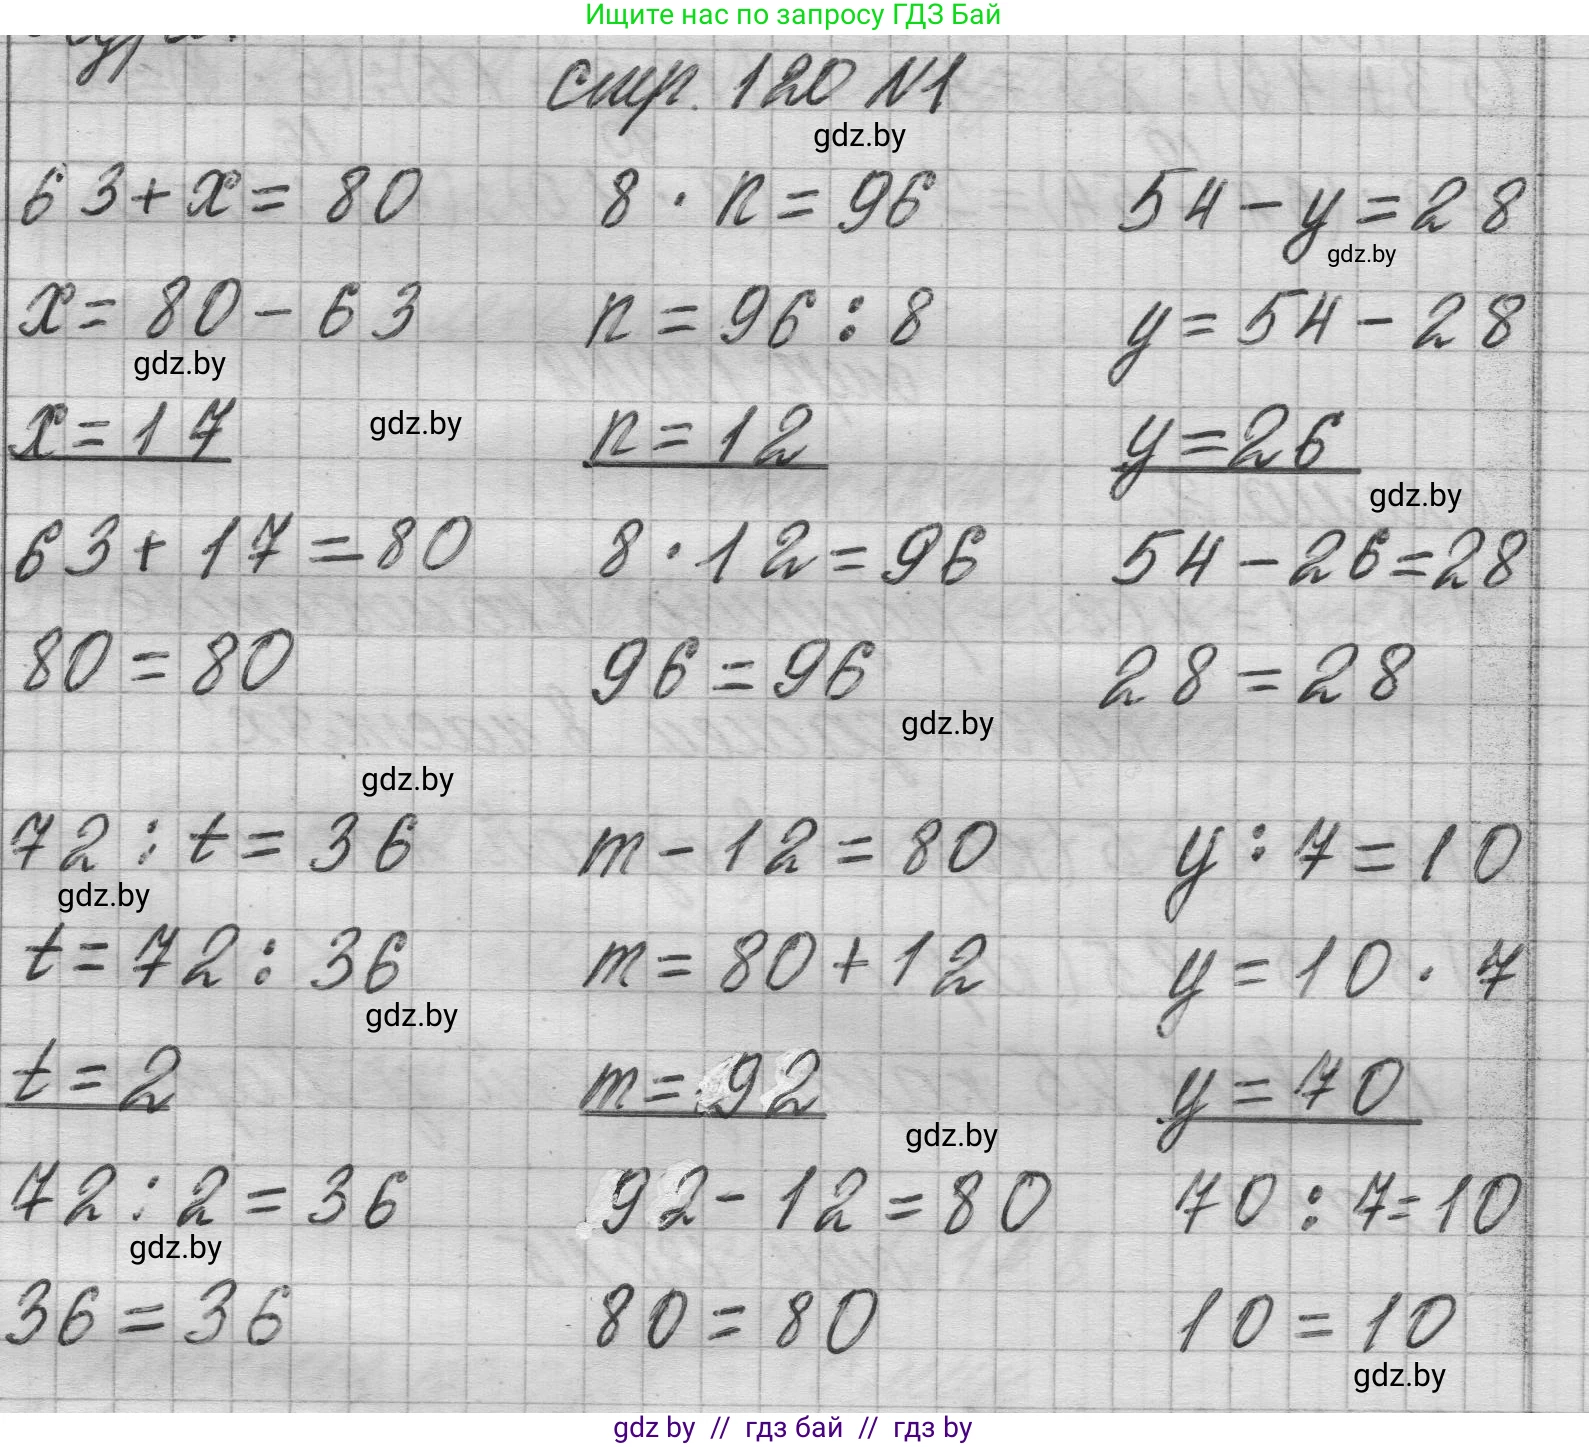 Ищите нас по запросу ГДЗ Бай
стр. 120 №1
gdz.by
63+x=80 8·n=96 54-y=28
gdz.by
x=80-63 n=96:8 y=54-28
gdz.by
x=17 gdz.by n=12 y=26
gdz.by
63+17=80 8·12=96 54-26=28
80=80 96=96 28=28
gdz.by
gdz.by
72:t=36 m-12=80 y:7=10
gdz.by
t=72:36 m=80+12 y=10·7
gdz.by
t=2 m=92 y=70
gdz.by
72:2=36 92-12=80 70:7=10
gdz.by
36=36 80=80 10=10
gdz.by
gdz by // гдз бай // гдз by